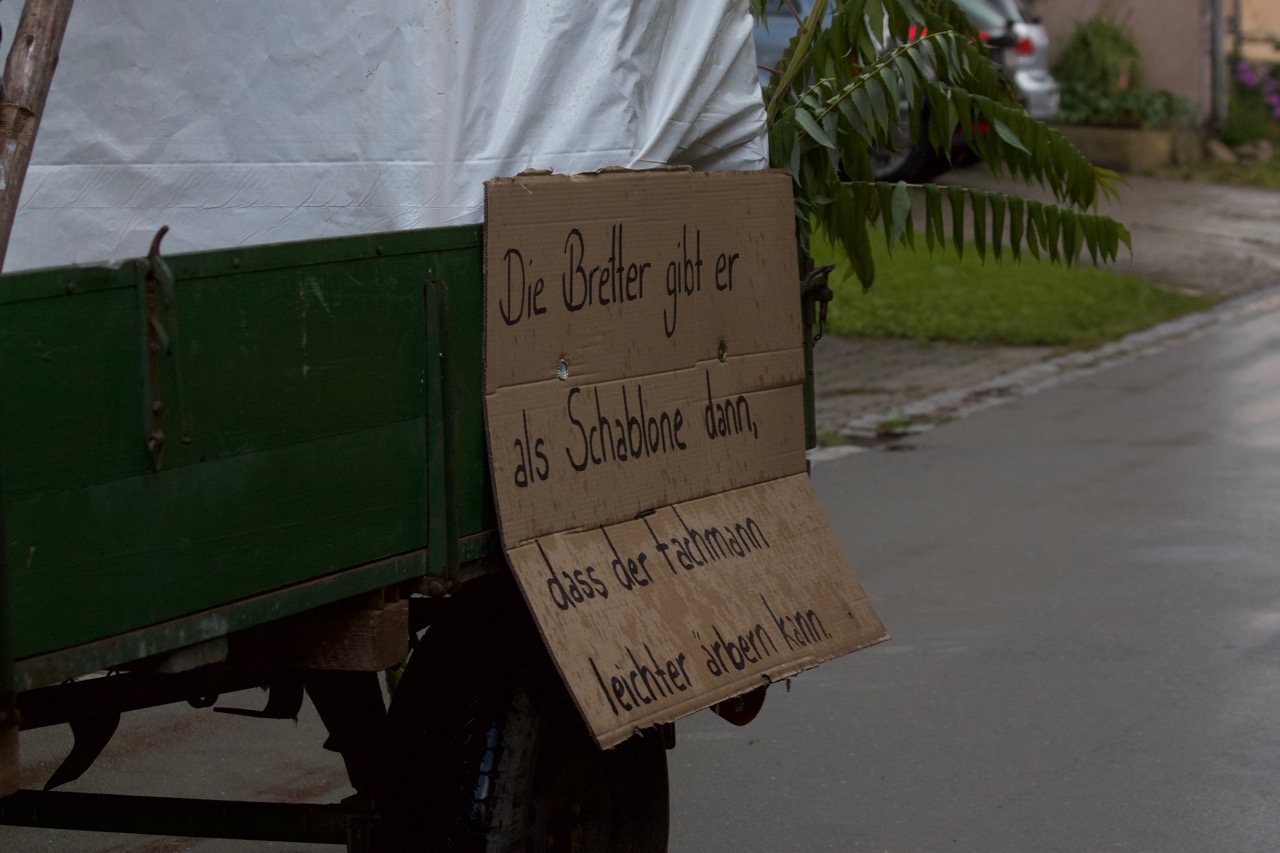 Die Bretter gibt er
als Schablone dann,
dass der Fachmann
leichter "arbern kann.